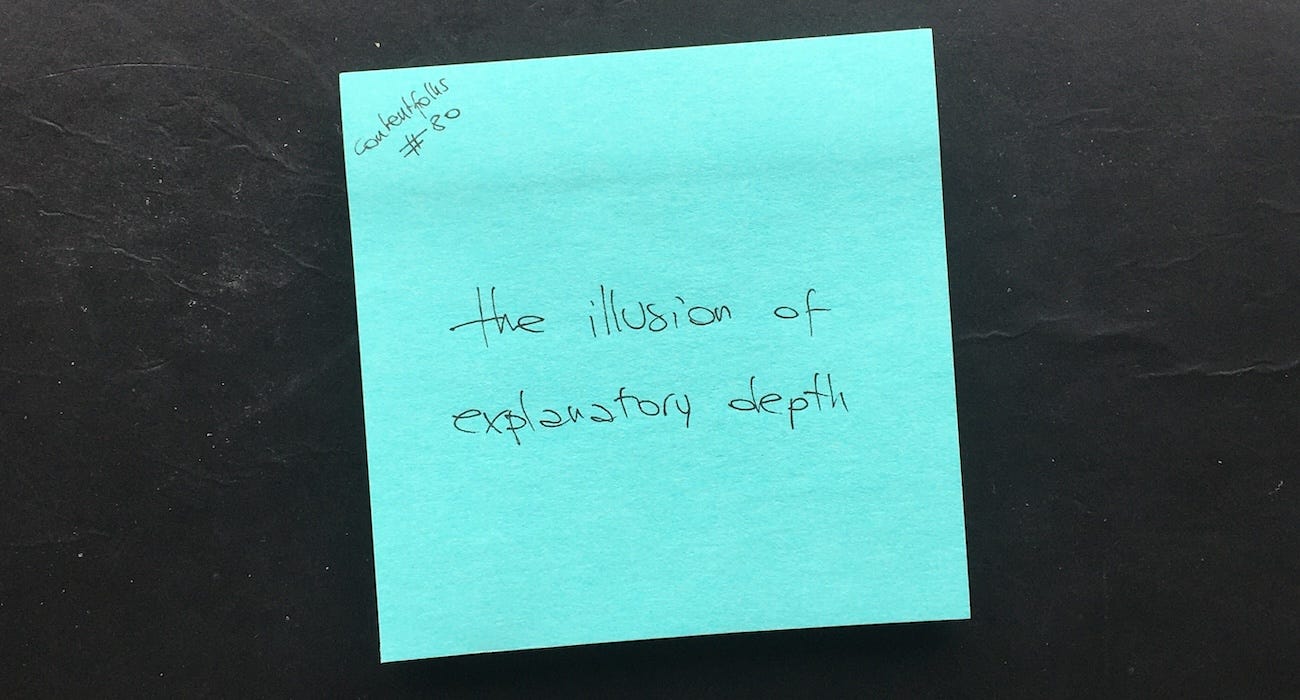 contentfolks
#80
the illusion of
explanatory depth